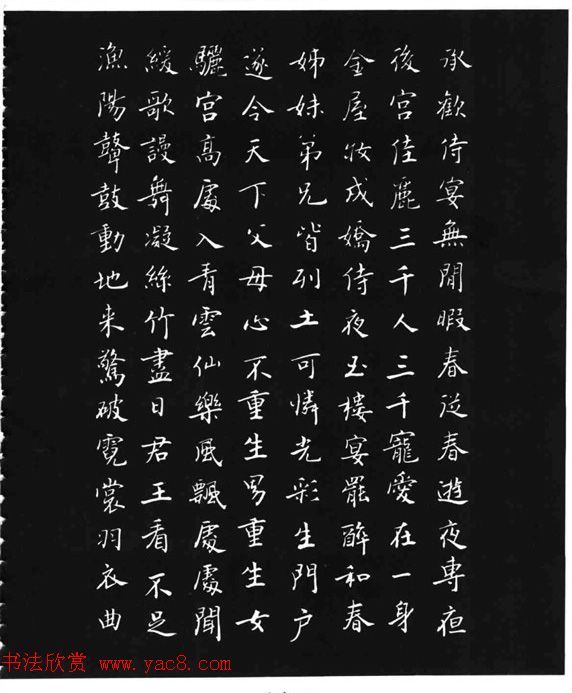 承歡侍宴無閒暇春從春遊夜專夜
後宮佳麗三千人三千寵愛在一身
金屋妝成嬌侍夜玉樓宴罷醉和春
姊妹弟兄皆列土可憐光彩生門戶
遂令天下父母心不重生男重生女
驪宮高處入青雲仙樂風飄處處聞
緩歌謾舞凝絲竹盡日君王看不足
漁陽鼙鼓動地来驚破霓裳羽衣曲
书法欣赏 www.yac8.com